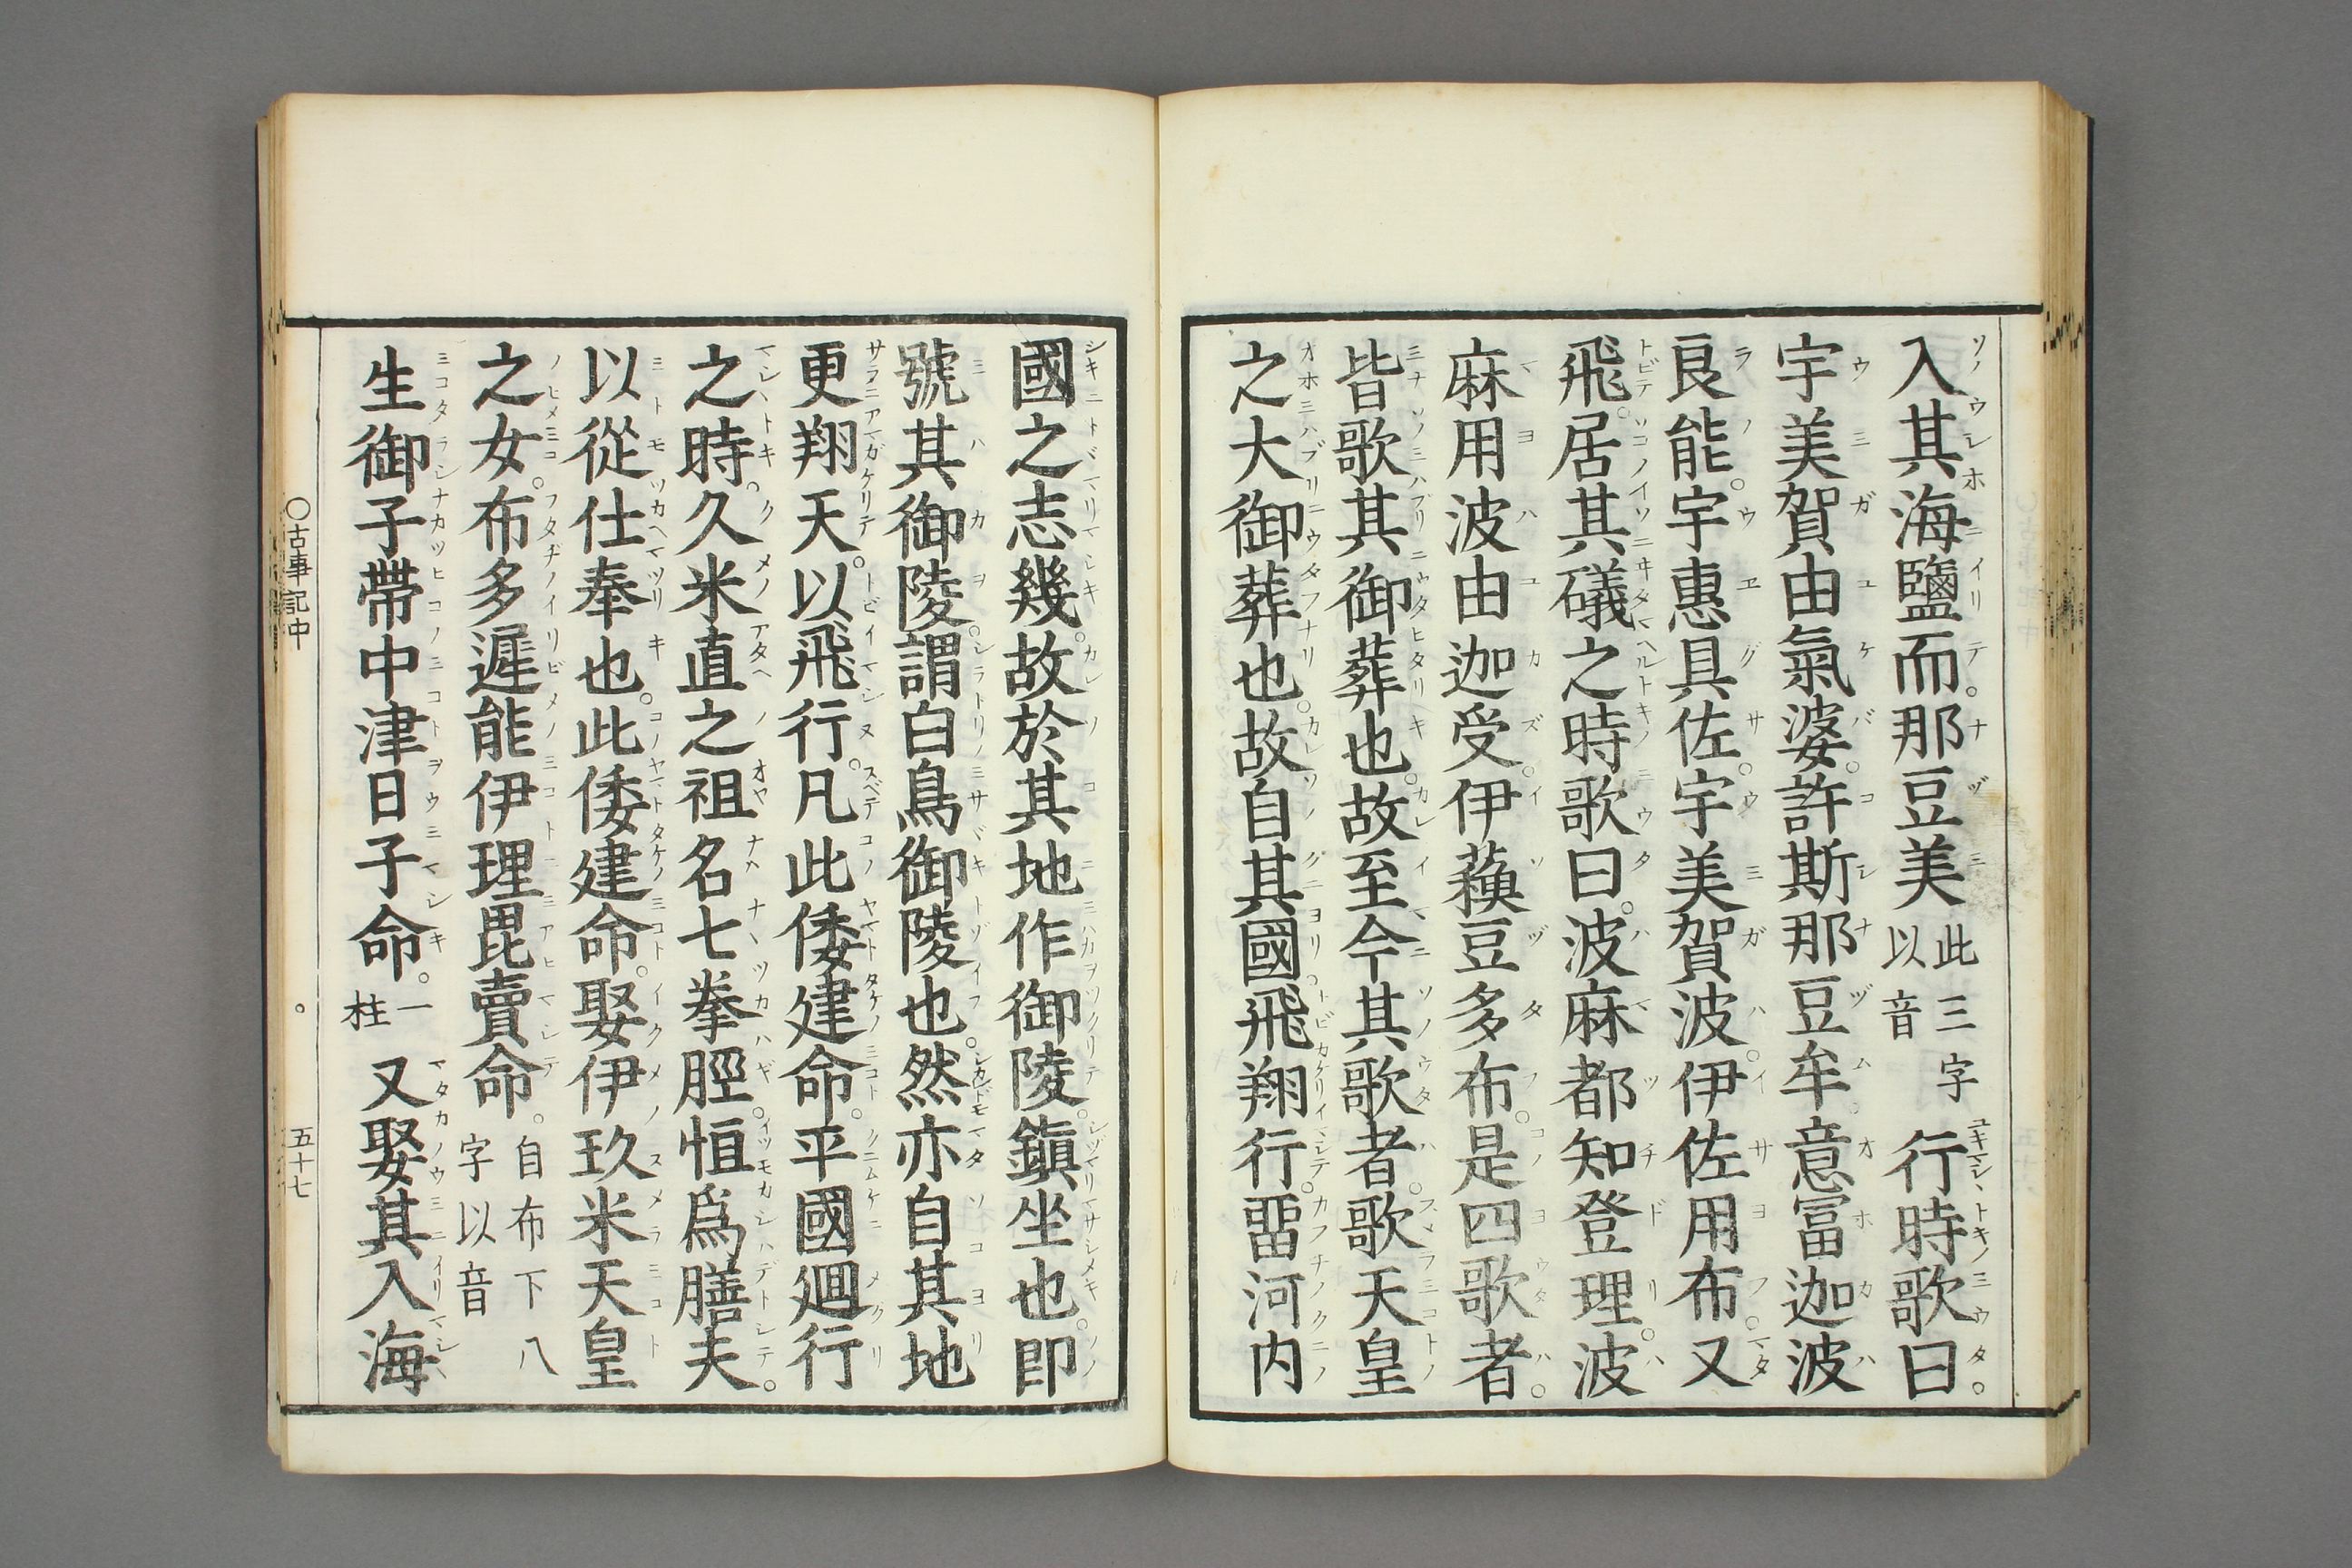 入其海鹽而。那豆美此三字以音行時歌曰。
宇美賀由氣婆。許斯那豆牟。意富迦波
良能。宇惠具佐。宇美賀波。伊佐用布。又
飛。居其礒之時歌曰。波麻都知登理。波
麻用波由迦受。伊蘓豆多布。是四歌者。
皆歌其御葬也。故至今其歌者。歌天皇
之大御葬也。故自其國。飛翔行。畱河内
國之志幾。故於其地作御陵。鎭坐也。卽
號其御陵。謂白鳥御陵也。然亦自其地
更翔天。以飛行。凡此倭建命。平國廻行
之時。久米直之祖名七拳脛。恒爲膳夫。
以從仕奉也。此倭建命。娶伊玖米天皇
之女。布多遲能伊理毘賣命。自布下八字以音
生御子帶中津日子命。一柱又娶其入海
〇古事記中
五十七